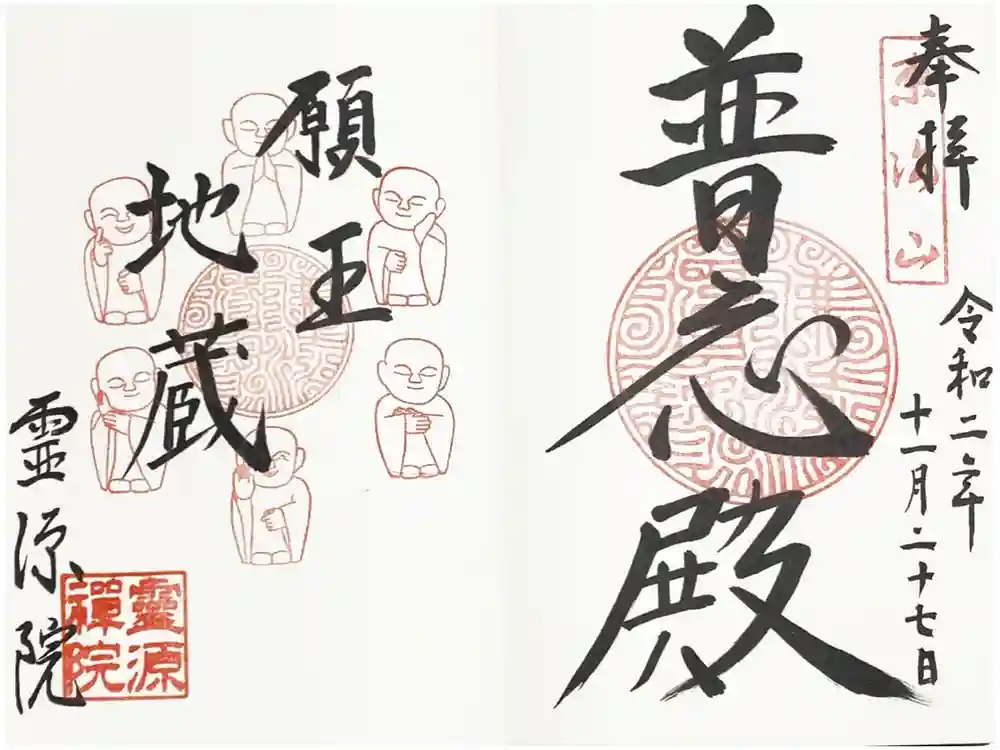 奉拝
普応殿
令和二年
十一月二十七日
願王
地蔵
霊源院
靈源
禪院